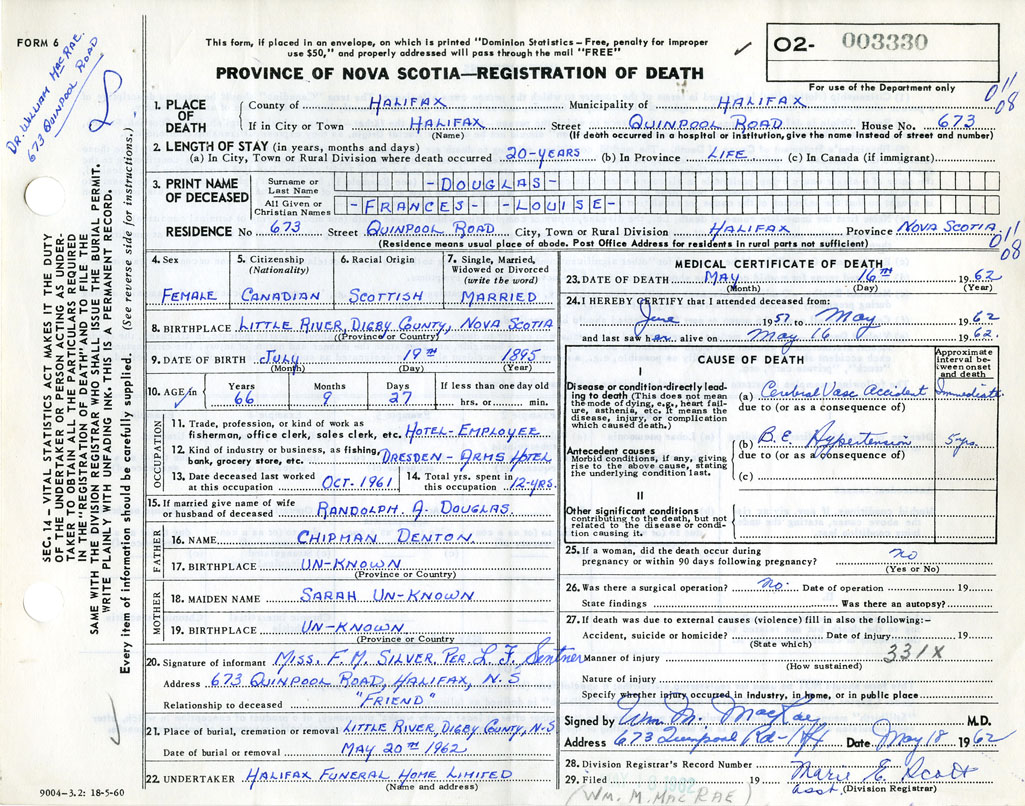 FORM 6
DR. WILLIAM MACRAE.
673 QUINPOOL ROAD
This form, if placed in an envelope, on which is printed "Dominion Statistics – Free, penalty for improper
use $50," and properly addressed will pass through the mail "FREE"
PROVINCE OF NOVA SCOTIA—REGISTRATION OF DEATH
O2- 003330
For use of the Department only
1. PLACE OF DEATH
County of HALIFAX Municipality of HALIFAX
01/08
If in City or Town HALIFAX Street QUINPOOL ROAD House No. 673
(Name) (If death occurred in a hospital or institution, give the name instead of street and number)
2. LENGTH OF STAY (in years, months and days)
(a) In City, Town or Rural Division where death occurred 20-YEARS (b) In Province LIFE (c) In Canada (if immigrant)
3. PRINT NAME OF DECEASED
Surname or Last Name -DOUGLAS-
All Given or Christian Names -FRANCES- -LOUISE-
RESIDENCE No 673 Street QUINPOOL ROAD City, Town or Rural Division HALIFAX Province NOVA SCOTIA
01/08
(Residence means usual place of abode. Post Office Address for residents in rural parts not sufficient)
4. Sex FEMALE
5. Citizenship (Nationality) CANADIAN
6. Racial Origin SCOTTISH
7. Single, Married, Widowed or Divorced (write the word) MARRIED
8. BIRTHPLACE LITTLE RIVER, DIGBY COUNTY, NOVA SCOTIA
(Province or Country)
9. DATE OF BIRTH JULY 19TH 1895
(Month) (Day) (Year)
10. AGE in Years 66 Months 9 Days 27 If less than one day old
hrs. or min.
OCCUPATION
11. Trade, profession, or kind of work as
fisherman, office clerk, sales clerk, etc. HOTEL-EMPLOYEE
12. Kind of industry or business, as fishing,
bank, grocery store, etc. DRESDEN-ARMS HOTEL
13. Date deceased last worked at this occupation OCT. 1961
14. Total yrs. spent in this occupation 12-YRS.
15. If married give name of wife
or husband of deceased RANDOLPH. A. DOUGLAS.
FATHER
16. NAME CHIPMAN DENTON.
17. BIRTHPLACE UN-KNOWN
(Province or Country)
MOTHER
18. MAIDEN NAME SARAH UN-KNOWN
19. BIRTHPLACE UN-KNOWN
(Province or Country
20. Signature of informant MISS. F. M. SILVER, PER L. F. Sentner
Address 673 QUINPOOL ROAD, HALIFAX, N.S
Relationship to deceased "FRIEND"
21. Place of burial, cremation or removal LITTLE RIVER, DIGBY COUNTY, N-S
Date of burial or removal MAY 20TH 1962
22. UNDERTAKER HALIFAX FUNERAL HOME LIMITED
(Name and address)
MEDICAL CERTIFICATE OF DEATH
23. DATE OF DEATH MAY 16TH 1962
(Month) (Day) (Year)
24. I HEREBY CERTIFY that I attended deceased from:
June 1957 to May 1962
and last saw her alive on May 16 1962.
CAUSE OF DEATH
Approximate interval between onset and death
I
Disease or condition directly leading to death (This does not mean the mode of dying, e.g., heart failure, asthenia, etc. It means the disease, injury, or complication which caused death.)
(a) Cerebral Vasc Accident Immediate
due to (or as a consequence of)
Antecedent causes
Morbid conditions, if any, giving rise to the above cause, stating the underlying condition last.
(b) B.E. Hypertension 5 yrs.
due to (or as a consequence of)
(c)
II
Other significant conditions
contributing to the death, but not related to the disease or condition causing it.
25. If a woman, did the death occur during
pregnancy or within 90 days following pregnancy? no
(Yes or No)
26. Was there a surgical operation? no. Date of operation 19
State findings Was there an autopsy?
27. If death was due to external causes (violence) fill in also the following:-
Accident, suicide or homicide? Date of injury 19
(State which)
Manner of injury 331X
(How sustained)
Nature of injury
Specify whether injury occurred in Industry, in home, or in public place
Signed by Wm. M. MacRae M.D.
Address 673 Quinpool Rd - Hfx Date May 18 1962
28. Division Registrar's Record Number
29. Filed 19 Marie E. Scott
asst. (Division Registrar)
(WM. M. MACRAE)
SEC. 14 – VITAL STATISTICS ACT MAKES IT THE DUTY
OF THE UNDERTAKER OR PERSON ACTING AS UNDER-
TAKER TO OBTAIN ALL THE PARTICULARS REQUIRED
IN THE "REGISTRATION OF DEATH" AND TO FILE THE
SAME WITH THE DIVISION REGISTRAR WHO SHALL ISSUE THE BURIAL PERMIT.
WRITE PLAINLY WITH UNFADING INK. THIS IS A PERMANENT RECORD.
Every item of information should be carefully supplied. (See reverse side for instructions.)
9004–3.2: 18-5-60